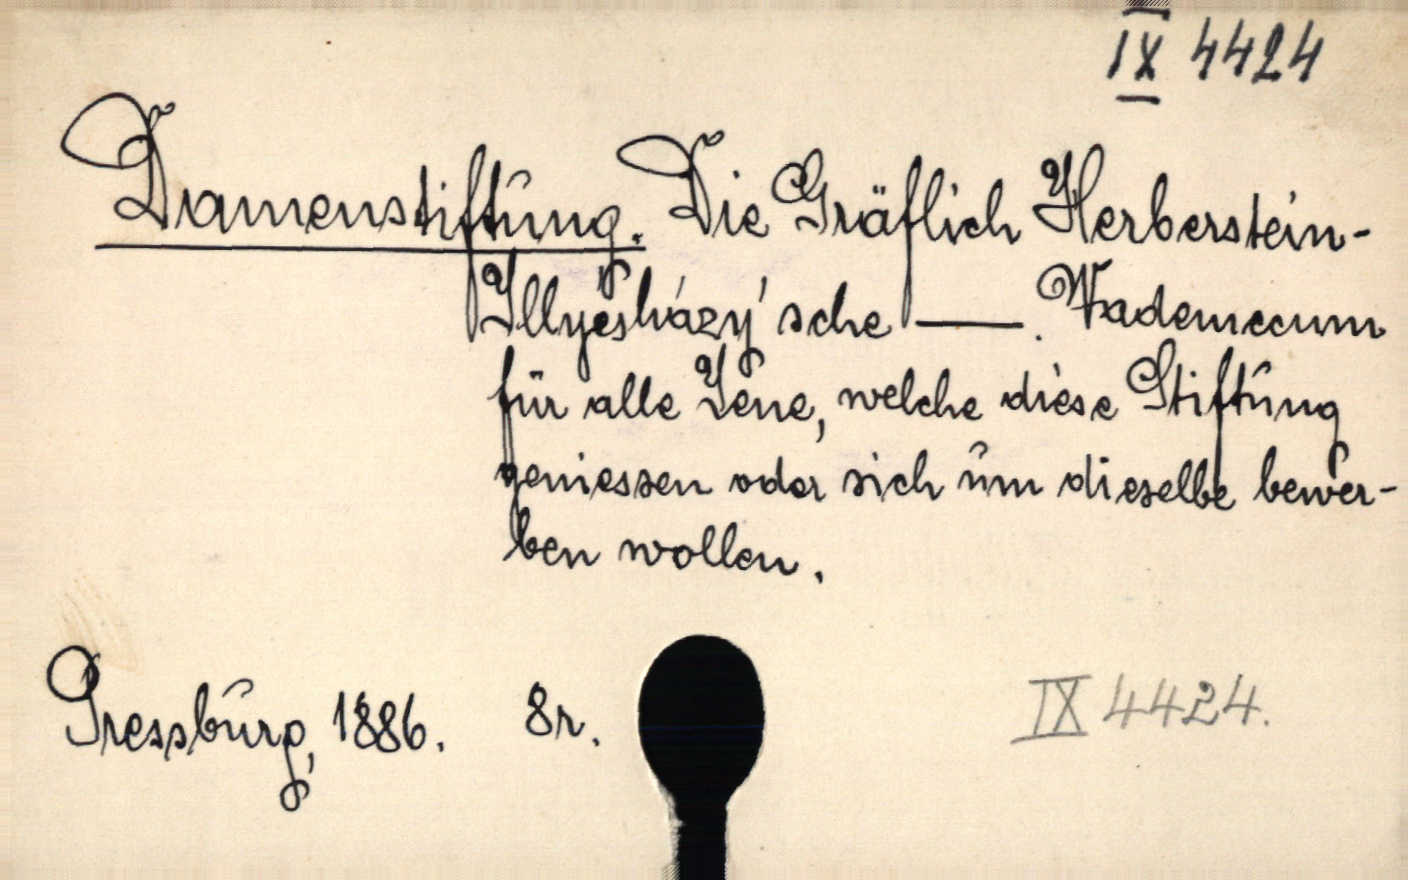 IX 4424
Damenstiftung. Die Gräflich Herberstein-
Illyésházy'sche ——. Vademecum
für alle Jene, welche diese Stiftung
geniessen oder sich um dieselbe bewer-
ben wollen.
Pressburg, 1886. 8r.
IX 4424.